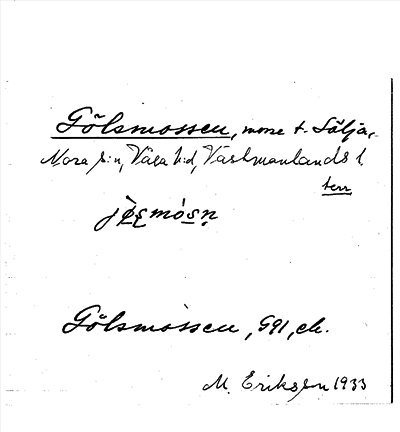 Gölsmossen, mosse t. Sälja,
Nora s:n, Våla h:d, Västmanlands l
terr
Gölsmossen, 991, ek.
M. Eriksson 1933